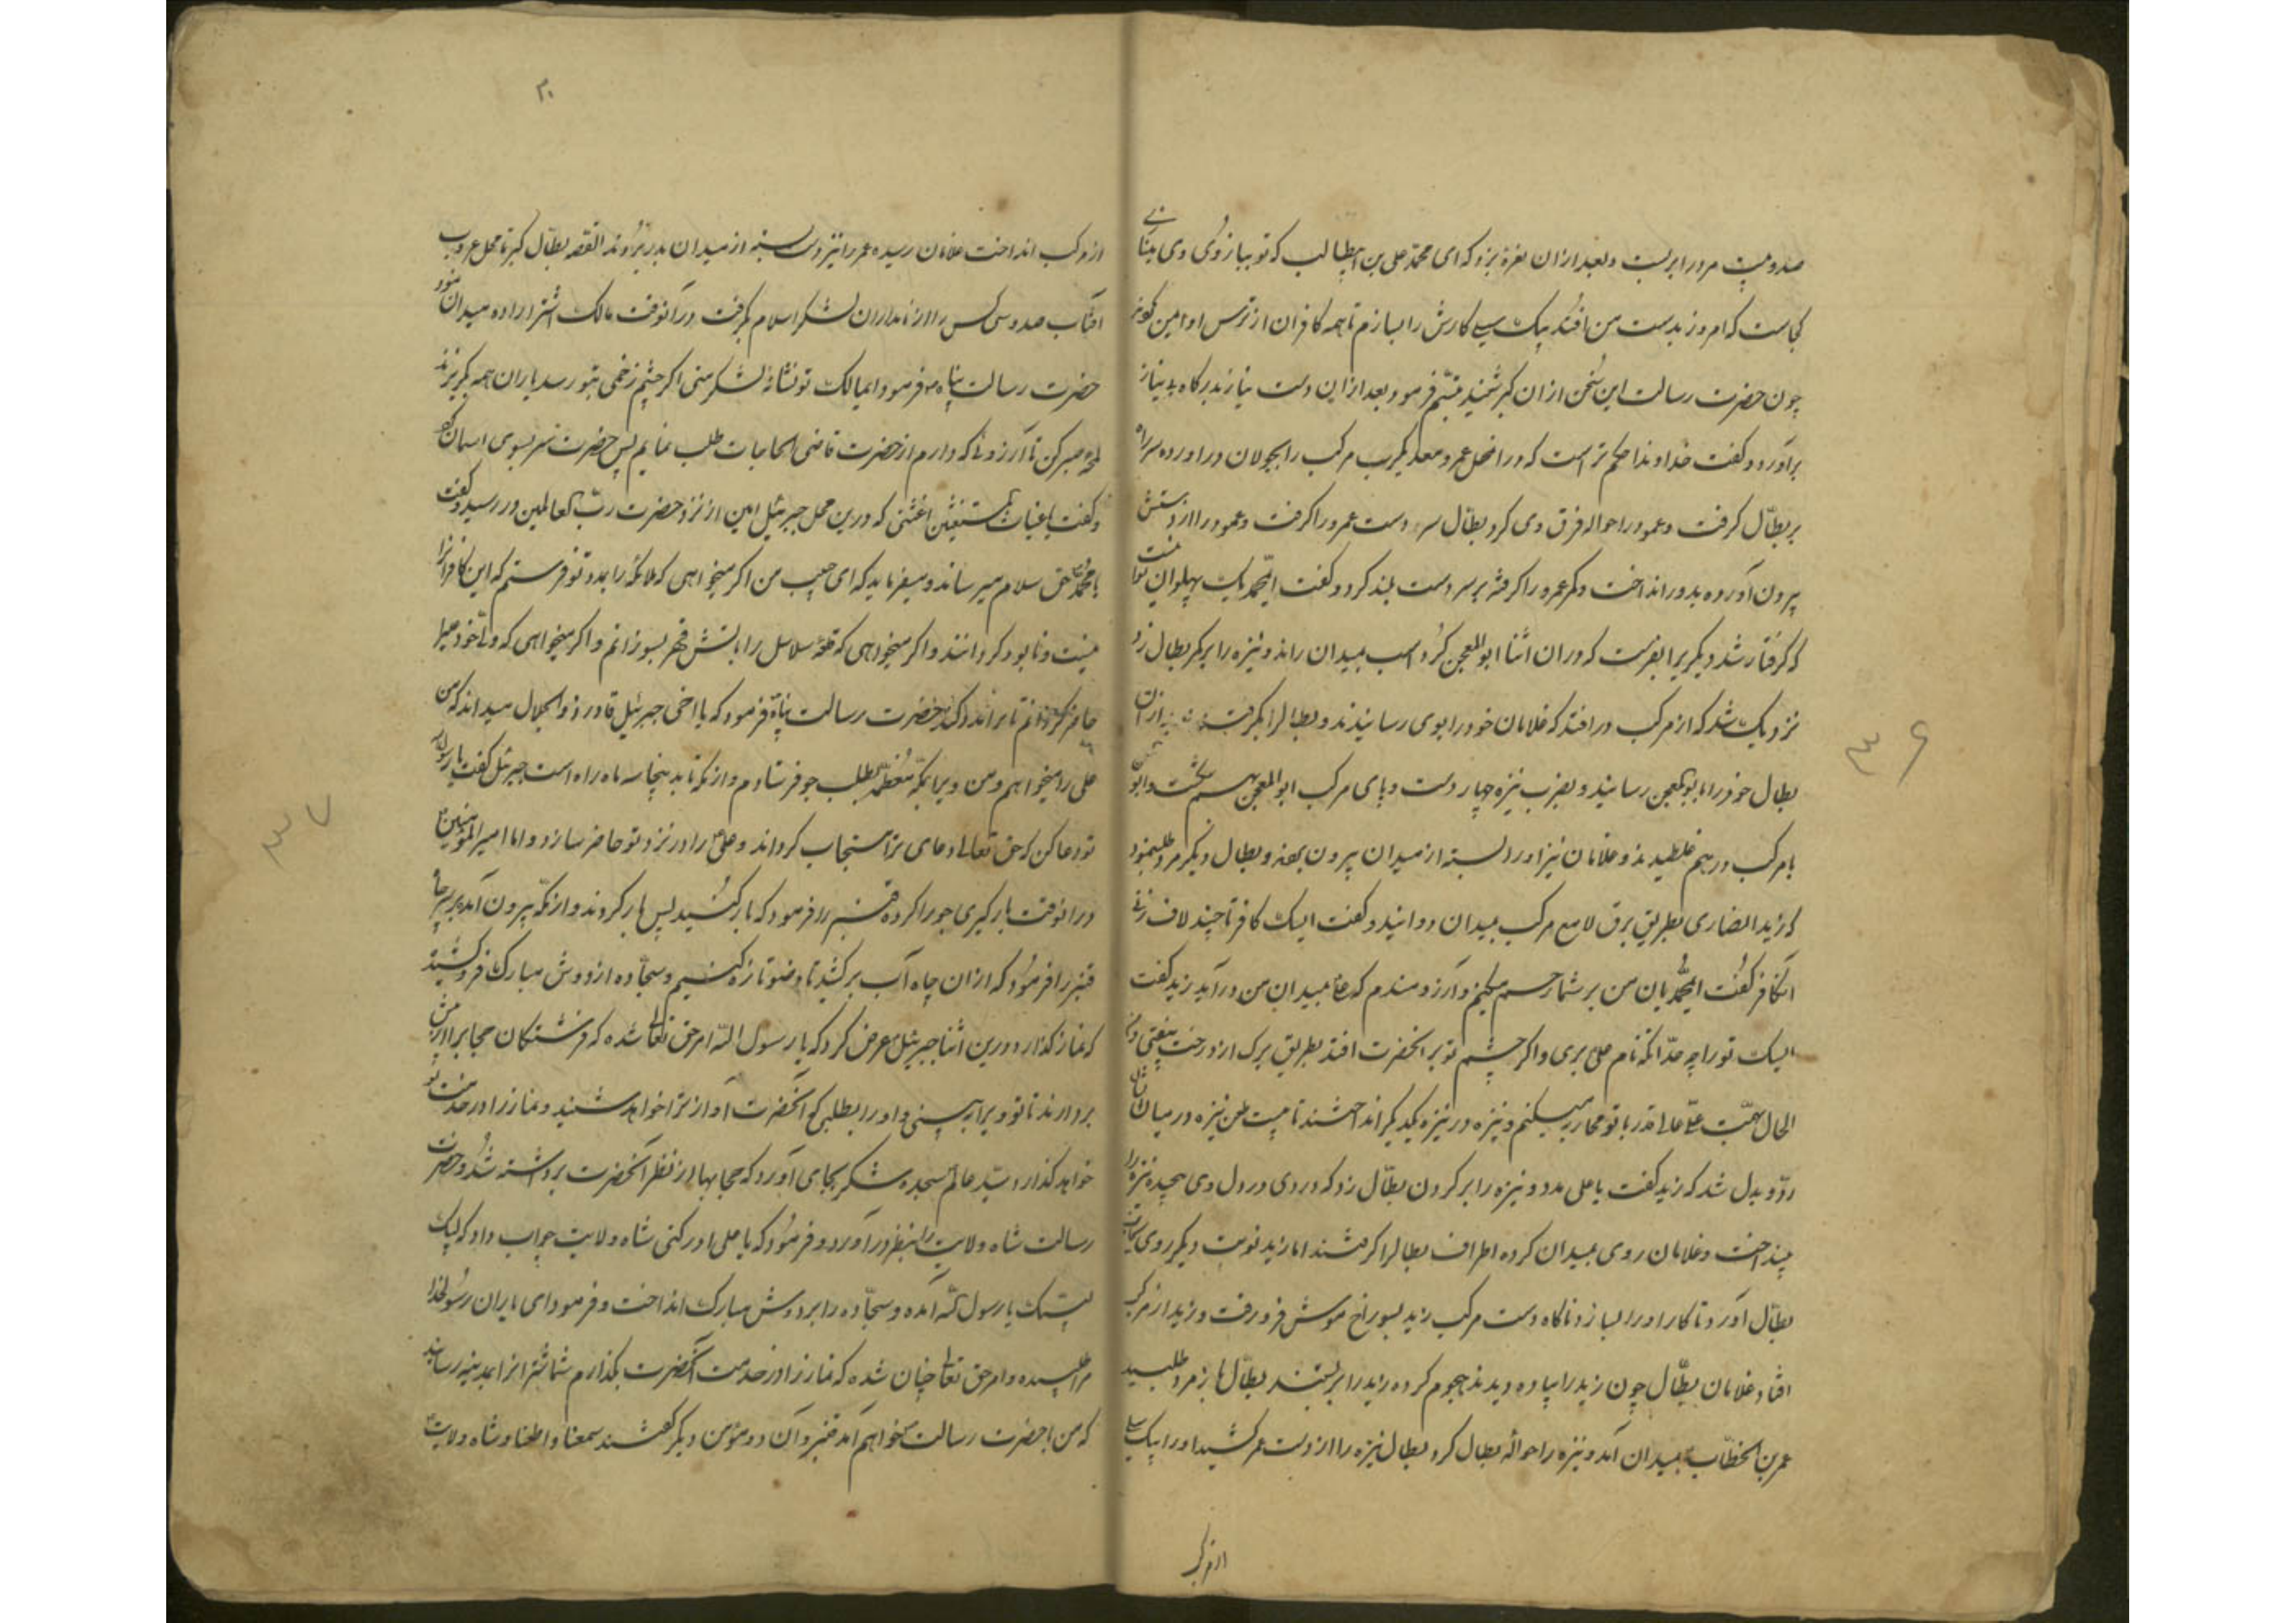 صد و بیست مرد را بربست و بعد از ان نعره بزد که ای محمد علی بن ابیطالب که تو ببازوی وی می نازی
کجاست که امروز بدست من افتد بیک سیلی کارش را بسازم تا همه کافران از ترس او ایمن کردند
چون حضرت رسالت این سخن از ان کبر شنید تبسم فرمود و بعد از ان دست نیاز بدرکاه بی نیاز
براورد و کفت خداوندا حکم تراست که در انمحل عمرو معدیکرب مرکب را بجولان دراورده سر راه
بر بطال کرفت و عمود را حواله فرق وی کرد بطال سر دست عمرو را کرفت و عمود را از دستش
بیرون آورده بدور انداخت و کمر عمرو را کرفته بر سر دست بلند کرد و کفت ایمحمد یک پهلوان تو اینست
که کرفتار شد دیکریرا بفرست که در ان اثنا ابوالمعجن کرد اسب بمیدان راند و نیزه را بر کمر بطال زد
نزدیک شد که از مرکب در افتد که غلامان خود را بوی رسانیدند و بطال را بکرفتند بعد از ان
بطال خود را بابوالمعجن رسانید و بضرب نیزه چهار دست و پای مرکب ابوالمعجن بهم شکست و ابوالمعجن
با مرکب در هم غلطیدند و غلامان نیز او را بسته از میدان بیرون بردند و بطال دیکر مرد طلبنمود
که زید انصاری بطریق برق لامع مرکب بمیدان دوانید و کفت ایسک کافر تا چند لاف زنی
انکافر کفت ایمحمدیان من بر شما رحم میکنم و آرزومندم که علی بمیدان من درآید زید کفت
ایسک تو را چه حد انکه نام علی بری و اکر چشم تو بر انحضرت افتد بطریق برک از درخت بیفتی و در
الحال بهمت علی عالی قدر با تو محاربه میکنم و نیزه در نیزه یکدیکر انداختند تا بیست طعن نیزه در میان ایشان
رد و بدل شد که زید کفت یا علی مدد و نیزه را بر کردن بطال زد که دردی در دل وی پیچیده نیزه را
بینداخت و غلامان روی بمیدان کرده اطراف بطال را کرفتند اما زید نوبت دیکر روی بجانب
بطال آورد تا کار او را بسازد ناکاه دست مرکب زید بسوراخ موش فرو رفت و زید از مرکب
افتاد غلامان بطال چون زید را پیاده دیدند هجوم کرده زید را بربستند بطال باز مرد طلبید
عمر بن الخطاب بمیدان آمد و نیزه را حواله بطال کرد بطال نیزه را از دست عمر کشید او را بیک سیلی
از مرکب
۳۶
۳۰
از مرکب انداخت غلامان رسیده عمر را نیز دست بسته از میدان بدر بردند القصه بطال کبر تا محل غروب
افتاب صد و سی کس را از نامداران لشکر اسلام بکرفت در آنوقت مالک اشتر اراده میدان نمود
حضرت رسالت پناه فرمود ایمالک تو نشانه لشکر منی اکر چشم زخمی بتو رسد یاران همه بکریزند
لحظه صبر کن تا آرزوئی که دارم از حضرت قاضی الحاجات طلب نمایم پس حضرت سر بسوی اسمان کرد
و کفت یا غیاث المستغیثین اغثنی که درین محل جبرئیل امین از نزد حضرت رب العالمین در رسید و کفت
یا محمد حق سلام میرساند و میفرماید که ای حبیب من اکر میخواهی که ملائکه را بمدد تو فرستم که این کافرانرا
نیست و نابود کردانند و اکر میخواهی که قلعه سلاسل را باتش قهر بسوزانم و اکر میخواهی که ولی خود را
حاضر کردانم تا براند کند حضرت رسالت پناه فرمود که یا اخی جبرئیل قادر ذوالجلال میداند که من
علی را میخواهم و من ویرا بمکه معظمه بطلب جو فرستادم و از مکه تا بدینجا سه ماه راه است جبرئیل کفت یا رسول الله
تو دعا کن که حق تعالی دعای ترا مستجاب کرداند و علی را در نزد تو حاضر سازد و اما امیر المؤمنین
در انوقت بارکیری جو را کرده قنبر را فرمود که بار کنید پس بار کردند و از مکه بیرون آمده بر سر چاه
قنبر را فرمود که ازان چاه آب برکشید تا وضو تازه کنیم و سجاده از دوش مبارک فرو کشید
که نماز کذارد درین اثنا جبرئیل عرض کرد که یا رسول الله امر حق تعالی شده که فرشتکان حجابرا از پیش
بردارند تا تو ویرا به بینی و او را بطلبی که انحضرت آواز ترا خواهد شنید و نماز را در خدمت تو
خواهد کذارد سید عالم سجده شکر بجای آورد که حجابها از نظر انحضرت برداشته شد و حضرت
رسالت شاه ولایت را بنظر درآورد و فرمود که یا علی ادرکنی شاه ولایت جواب داد که لبیک
لبیک یا رسول الله آمده و سجاده را بر دوش مبارک انداخت و فرمود ای یاران رسول خدا
مرا طلبیده و امر حق تعالی چنان شده که نماز را در خدمت انحضرت بکذارم شما شترانرا بمدینه رسانید
که من با حضرت رسالت خواهم آمد قنبر و آن دو مؤمن دیکر کفتند سمعنا و اطعنا و شاه ولایت
۳۷